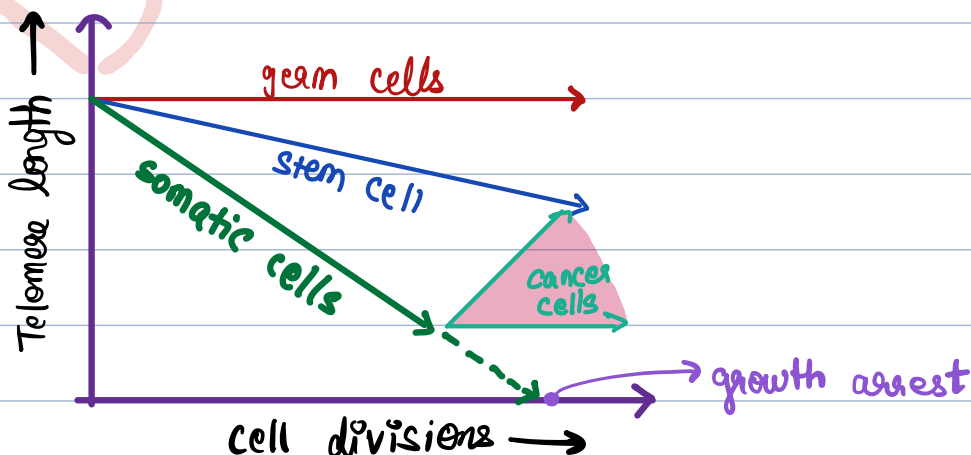 Telomere length
germ cells
stem cell
somatic cells
cancer
cells
growth arrest
cell divisions